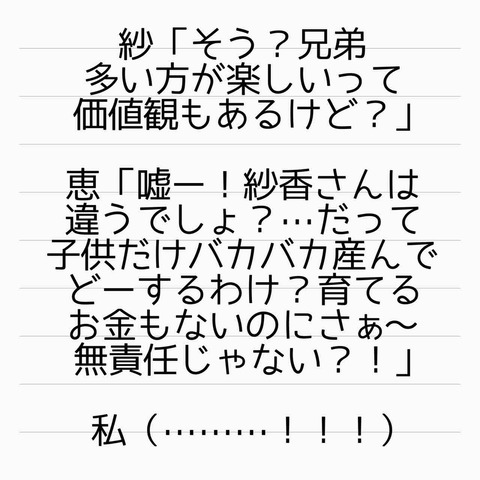 紗「そう？兄弟
多い方が楽しいって
価値観もあるけど？」
恵「嘘ー！紗香さんは
違うでしょ？…だって
子供だけバカバカ産んで
どーするわけ？育てる
お金もないのにさぁ〜
無責任じゃない？！」
私（………！！！）